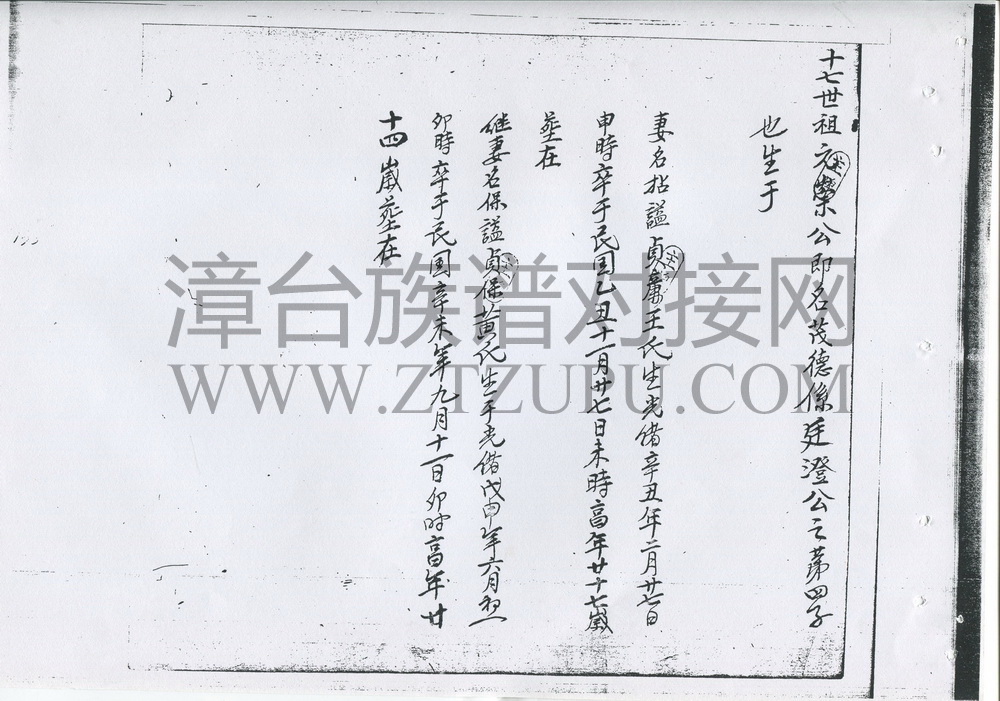 十七世祖元榮公即名茂德係廷澄公之第四子
也生于
妻名拈謚貞 王氏生光绪辛丑年二月廿七日
申時卒于民国乙丑十一月廿七日未時高年廿十七歲
茔在
继妻名保謚貞保黃氏生于光绪戊申年六月初一
卯時卒于民国辛未年九月十一日卯時高年廿
十四歲茔在
漳台族谱对接网
WWW.ZTZUPU.COM